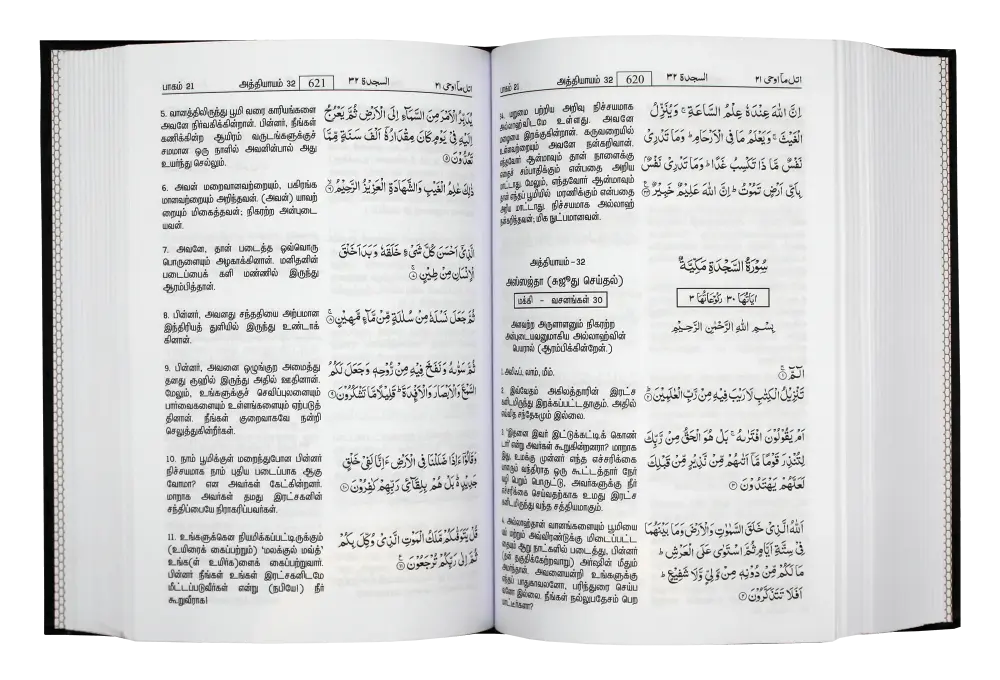 பாகம் 21 அத்தியாயம் 32 620 السجدة ٣٢ اتل ما اوحى ٢١
اِنَّ اللّٰهَ عِنْدَهٗ عِلْمُ السَّاعَةِ ۚ وَيُنَزِّلُ
الْغَيْثَ ۚ وَيَعْلَمُ مَا فِى الْاَرْحَامِ ؕ وَمَا تَدْرِىْ
نَفْسٌ مَّا ذَا تَكْسِبُ غَدًا ؕ وَمَا تَدْرِىْ نَفْسٌۢ
بِاَىِّ اَرْضٍ تَمُوْتُ ؕ اِنَّ اللّٰهَ عَلِيْمٌ خَبِيْرٌ
34. மறுமை பற்றிய அறிவு நிச்சயமாக
அல்லாஹ்விடமே உள்ளது. அவனே
மழையை இறக்குகின்றான். கருவறையில்
உள்ளவற்றையும் அவனே நன்கறிவான்.
எந்தவோர் ஆன்மாவும் தான் நாளைக்கு
எதைச் சம்பாதிக்கும் என்பதை அறிய
மாட்டாது மேலும், எந்தவோர் ஆன்மாவும்
தான் எந்தப் பூமியில் மரணிக்கும் என்பதை
அறிய மாட்டாது. நிச்சயமாக அல்லாஹ்
நன்கறிந்தவன்; மிக நுட்பமானவன்.
سُوْرَةُ السَّجْدَةِ مَكِّيَّةٌ
اٰيَاتُهَا ٣٠ رُكُوْعَاتُهَا ٣
بِسْمِ اللّٰهِ الرَّحْمٰنِ الرَّحِيْمِ
அத்தியாயம் -32
அஸ்ஸஜ்தா (சுஜூது செய்தல்)
மக்கி - வசனங்கள் 30
அளவற்ற அருளாளனும் நிகரற்ற
அன்புடையவனுமாகிய அல்லாஹ்வின்
பெயரால் (ஆரம்பிக்கின்றேன்.)
الٓمّٓ ۚ ١
تَنْزِيْلُ الْكِتٰبِ لَا رَيْبَ فِيْهِ مِنْ رَّبِّ الْعٰلَمِيْنَ ؕ ٢
اَمْ يَقُوْلُوْنَ افْتَرٰٮهُ ۚ بَلْ هُوَ الْحَقُّ مِنْ رَّبِّكَ
لِتُنْذِرَ قَوْمًا مَّاۤ اَتٰٮهُمْ مِّنْ نَّذِيْرٍ مِّنْ قَبْلِكَ
لَعَلَّهُمْ يَهْتَدُوْنَ ٣
اَللّٰهُ الَّذِىْ خَلَقَ السَّمٰوٰتِ وَالْاَرْضَ وَمَا بَيْنَهُمَا
فِىْ سِتَّةِ اَيَّامٍ ثُمَّ اسْتَوٰى عَلَى الْعَرْشِ ؕ
مَا لَكُمْ مِّنْ دُوْنِهٖ مِنْ وَّلِىٍّ وَّلَا شَفِيْعٍ ؕ
اَفَلَا تَتَذَكَّرُوْنَ ٤
1. அலிஃப், லாம், மீம்.
2. இவ்வேதம் அகிலத்தாரின் இரட்ச
இறக்கப்பட்டதாகும். அதில்
சந்தேகமும் இல்லை.
3. 'இதனை இவர் இட்டுக்கட்டிக் கொண்
என்று அவர்கள் கூறுகின்றனரா? மாறாக
இது, உமக்கு முன்னர் எந்த எச்சரிக்கை
வந்திராத ஒரு கூட்டத்தார் நேர்
வழி பெறும் பொருட்டு, அவர்களுக்கு நீர்
எச்சரிக்கை செய்வதற்காக உமது இரட்ச
வந்த சத்தியமாகும்.
4. அல்லாஹ்தான் வானங்களையும் பூமியை
அவ்விரண்டுக்கு மிடைப்பட்ட
ஆறு நாட்களில் படைத்து, பின்னர்
(தன் தகுதிக்கேற்றவாறு) அர்ஷின் மீதும்
அமர்ந்தான். அவனையன்றி உங்களுக்கு
எந்தப் பாதுகாவலனோ, பரிந்துரை செய்ப
இல்லை. நீங்கள் நல்லுபதேசம் பெற
மாட்டீர்களா?
பாகம் 21 அத்தியாயம் 32 621 السجدة ٣٢ اتل ما اوحى ٢١
يُدَبِّرُ الْاَمْرَ مِنَ السَّمَآءِ اِلَى الْاَرْضِ ثُمَّ يَعْرُجُ
اِلَيْهِ فِىْ يَوْمٍ كَانَ مِقْدَارُهٗۤ اَلْفَ سَنَةٍ مِّمَّا
تَعُدُّوْنَ ٥
ذٰ لِكَ عٰلِمُ الْغَيْبِ وَالشَّهَادَةِ الْعَزِيْزُ الرَّحِيْمُ ۙ ٦
الَّذِىْۤ اَحْسَنَ كُلَّ شَىْءٍ خَلَقَهٗ وَبَدَاَ خَلْقَ
الْاِنْسَانِ مِنْ طِيْنٍ ۚ
ثُمَّ جَعَلَ نَسْلَهٗ مِنْ سُلٰلَةٍ مِّنْ مَّآءٍ مَّهِيْنٍ ۚ ٨
ثُمَّ سَوّٰٮهُ وَنَفَخَ فِيْهِ مِنْ رُّوْحِهٖ وَجَعَلَ لَكُمُ
السَّمْعَ وَالْاَبْصَارَ وَالْاَفْـِٕدَةَ ؕ قَلِيْلًا مَّا تَشْكُرُوْنَ ٩
وَقَالُوْۤا ءَاِذَا ضَلَلْنَا فِى الْاَرْضِ ءَاِنَّا لَفِىْ خَلْقٍ
جَدِيْدٍ ؕ بَلْ هُمْ بِلِقَآئِ رَبِّهِمْ كٰفِرُوْنَ ١٠
قُلْ يَتَوَفّٰٮكُمْ مَّلَكُ الْمَوْتِ الَّذِىْ وُكِّلَ بِكُمْ
ثُمَّ اِلٰى رَبِّكُمْ تُرْجَعُوْنَ ١١
5. வானத்திலிருந்து பூமி வரை காரியங்களை
அவனே நிர்வகிக்கின்றான். பின்னர், நீங்கள்
கணிக்கின்ற ஆயிரம் வருடங்களுக்குச்
சமமான ஒரு நாளில் அவனின்பால் அது
உயர்ந்து செல்லும்.
6. அவன் மறைவானவற்றையும், பகிரங்க
மானவற்றையும் அறிந்தவன். (அவன்) யாவற்
றையும் மிகைத்தவன்; நிகரற்ற அன்புடை
யவன்.
7. அவனே, தான் படைத்த ஒவ்வொரு
பொருளையும் அழகாக்கினான். மனிதனின்
படைப்பைக் களி மண்ணில் இருந்து
ஆரம்பித்தான்.
8. பின்னர், அவனது சந்ததியை அற்பமான
இந்திரியத் துளியில் இருந்து உண்டாக்
கினான்.
9. பின்னர், அவனை ஒழுங்குற அமைத்து
தனது ரூஹில் இருந்து அதில் ஊதினான்.
மேலும், உங்களுக்குச் செவிப்புலனையும்
பார்வைகளையும் உள்ளங்களையும் ஏற்படுத்
தினான். நீங்கள் குறைவாகவே நன்றி
செலுத்துகின்றீர்கள்.
10. நாம் பூமிக்குள் மறைந்துபோன பின்னர்
நிச்சயமாக நாம் புதிய படைப்பாக ஆகு
வோமா? என அவர்கள் கேட்கின்றனர்.
மாறாக அவர்கள் தமது இரட்சகனின்
சந்திப்பையே நிராகரிப்பவர்கள்.
11. உங்களுக்கென நியமிக்கப்பட்டிருக்கும்
(உயிரைக் கைப்பற்றும்) 'மலக்குல் மவ்த்'
உங்க(ள் உயிர்க)ளைக் கைப்பற்றுவார்.
பின்னர் நீங்கள் உங்கள் இரட்சகனிடமே
மீட்டப்படுவீர்கள் என்று (நபியே!) நீர்
கூறுவீராக!